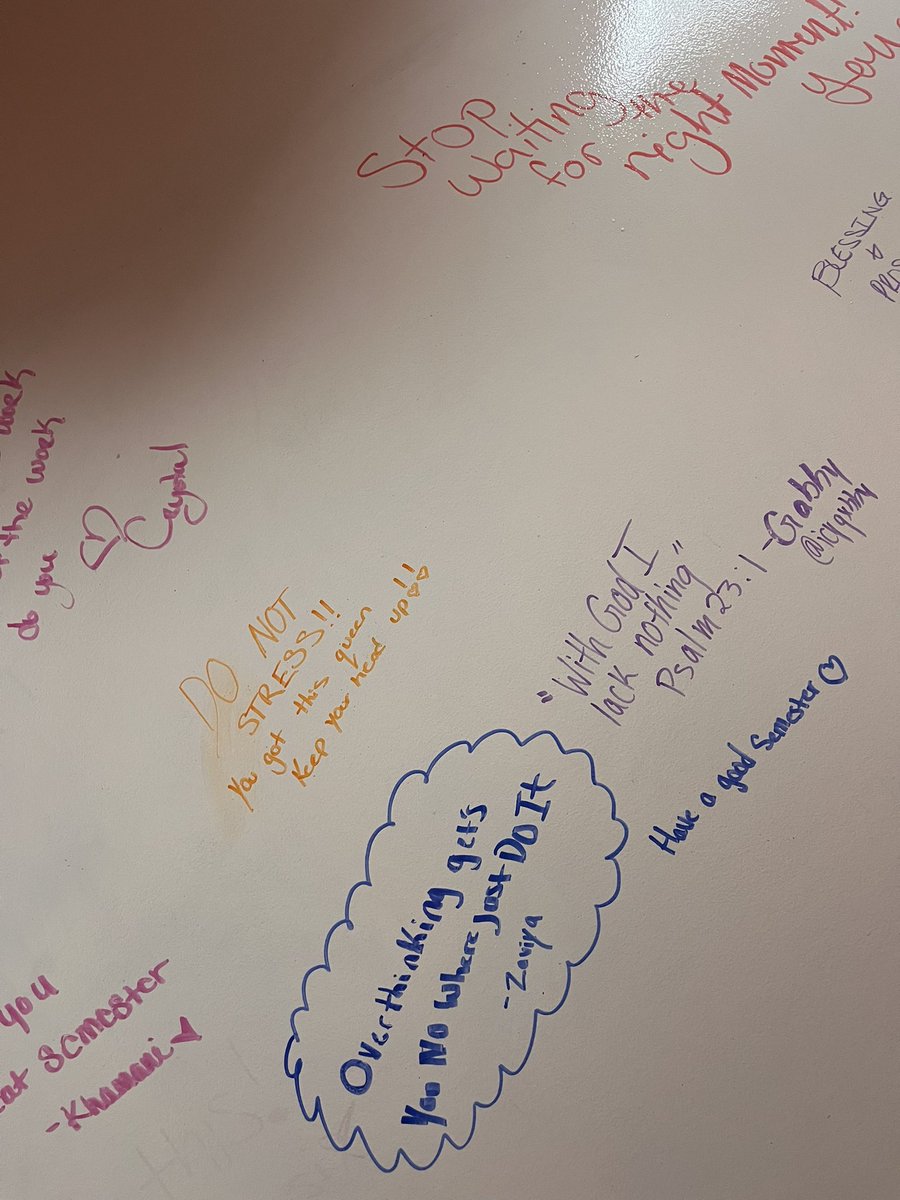 Stop
Waiting
for the
right Moment!
You
BLESSING
work
the work
do you
Crystal
DO NOT
STRESS!!
You got this queen
Keep your head up!!
"With God I
lack nothing"
Psalm 23:1 -Gabby
Have a good Semester
Overthinking gets
You No Where Just DO It
- Zaviya
you
Semester
-Khamani